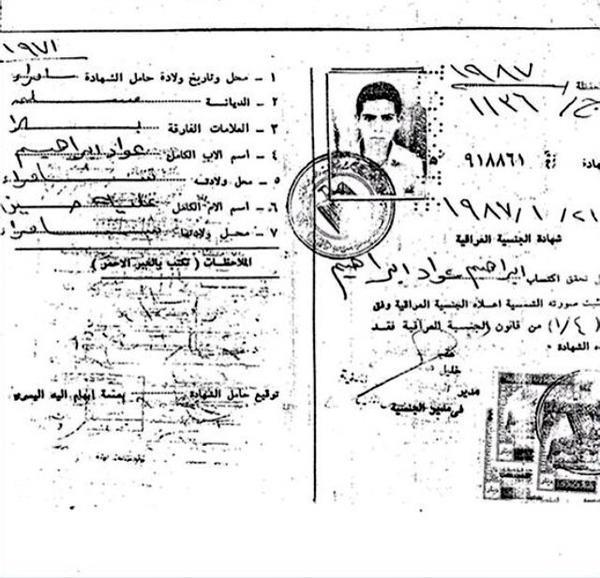 ١٩٨٧
المحفظة
ج/ ١١٢٦
٩١٨٨٦١
٢١/ ١/ ١٩٨٧
شهادة الجنسية العراقية
تحقق اكتساب ابراهيم عواد ابراهيم
صورته الشمسية اعلاه الجنسية العراقية وفق
(٤/١) من قانون الجنسية العراقية فقد
الشهادة •
خليل
مدير
مدير الجنسية
١٩٧١
١ – محل وتاريخ ولادة حامل الشهادة سامراء
٢ – الديانة مسلم
٣ – العلامات الفارقة بلا
٤ – اسم الاب الكامل عواد ابراهيم
٥ – محل ولادته سامراء
٦ – اسم الام الكامل
٧ – محل ولادتها سامراء
الملاحظات ( تكتب بالحبر الاحمر )
توقيع حامل الشهادة بصمة ابهام اليد اليسرى